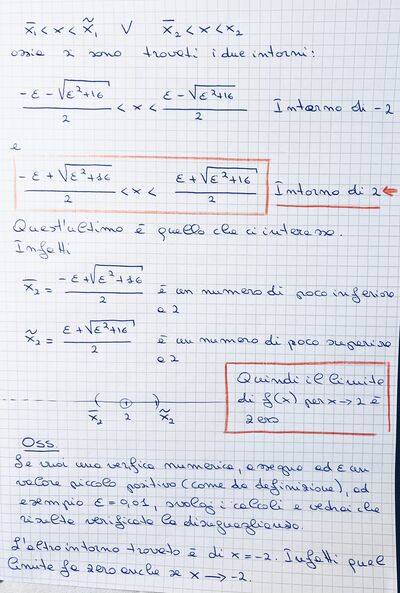 x̄₁ < x < x̃₁ ∨ x̄₂ < x < x₂
ossia si sono trovati i due intorni:
(-ε - √(ε²+16))/2 < x < (ε - √(ε²+16))/2 Intorno di -2
e
(-ε + √(ε²+16))/2 < x < (ε + √(ε²+16))/2 Intorno di 2 ←
Quest'ultimo è quello che ci interessa.
Infatti
x̄₂ = (-ε + √(ε²+16))/2 è un numero di poco inferiore
a 2
x̃₂ = (ε + √(ε²+16))/2 è un numero di poco superiore
a 2
Quindi il limite
di f(x) per x→2 è
zero
x̄₂ 2 x̃₂
Oss.
Se vuoi una verifica numerica, assegna ad ε un
valore piccolo positivo (come da definizione), ad
esempio ε = 0,01, svolgi i calcoli e vedrai che
risulta verificata la disuguaglianza.
L'altro intorno trovato è di x = -2. Infatti quel
limite fa zero anche se x → -2.